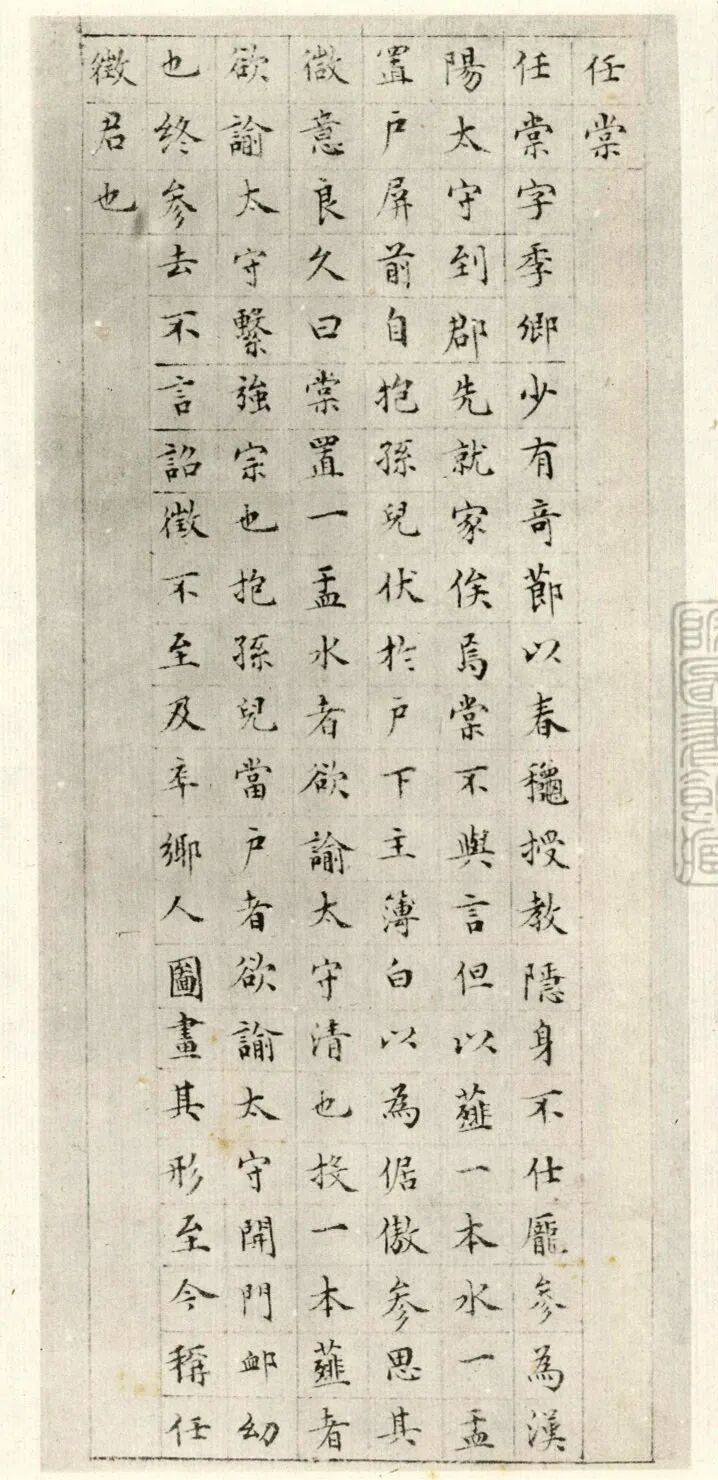 任棠
任棠字季卿少有竒莭以春穐授教隱身不仕龐参為漢
陽太守到郡先就家俟焉棠不與言但以薤一本水一盂
置戶屏前自抱孫兒伏於戶下主薄白以為倨傲参思其
微意良久曰棠置一盂水者欲諭太守清也投一本薤者
欲諭太守繫強宗也抱孫兒當戶者欲諭太守開門卹幼
也終参去不言詔徵不至及卒鄉人圖畫其形至今稱任
徵君也